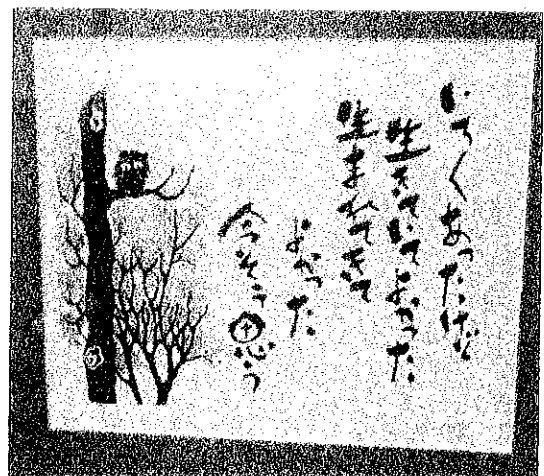 いろいろあったけど
生きていてよかった
生まれてきて
よかった
今そう思う